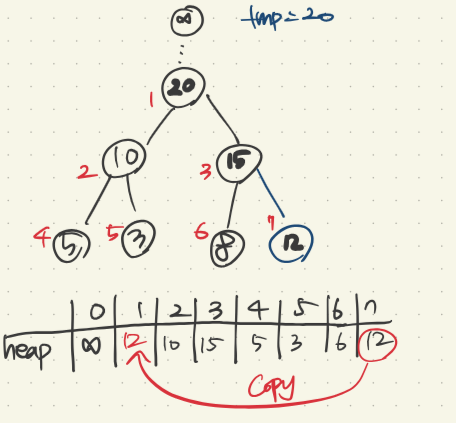 ∞ tmp=20
⋮
20
1
10 15
2 3
4 5 5 3 6 8 7 12
0 1 2 3 4 5 6 7
heap ∞ 12 10 15 5 3 6 12
Copy